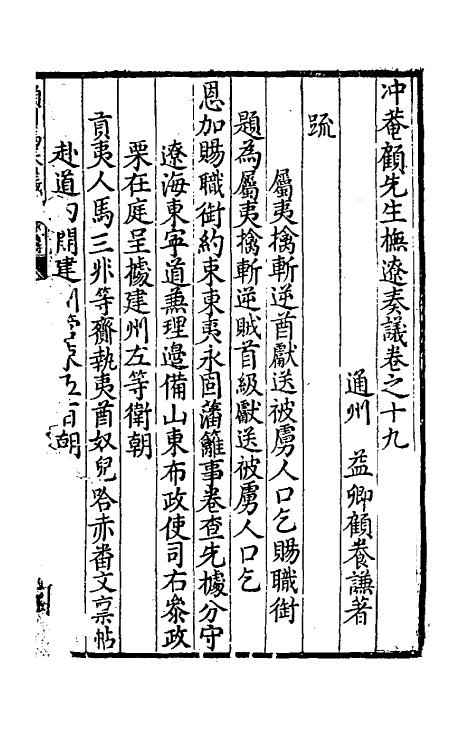 冲菴顧先生撫遼奏議卷之十九
通州　益卿顧養謙著
疏
屬夷擒斬逆酋獻送被虜人口乞賜職銜
題為屬夷擒斬逆賊首級獻送被虜人口乞
恩加賜職銜約束東夷永固藩籬事卷查先據分守
遼海東寧道兼理邊備山東布政使司右叅政
栗在庭呈據建州左等衛朝
貢夷人馬三非等齎執夷酋奴兒哈赤番文稟帖
赴道內開建州